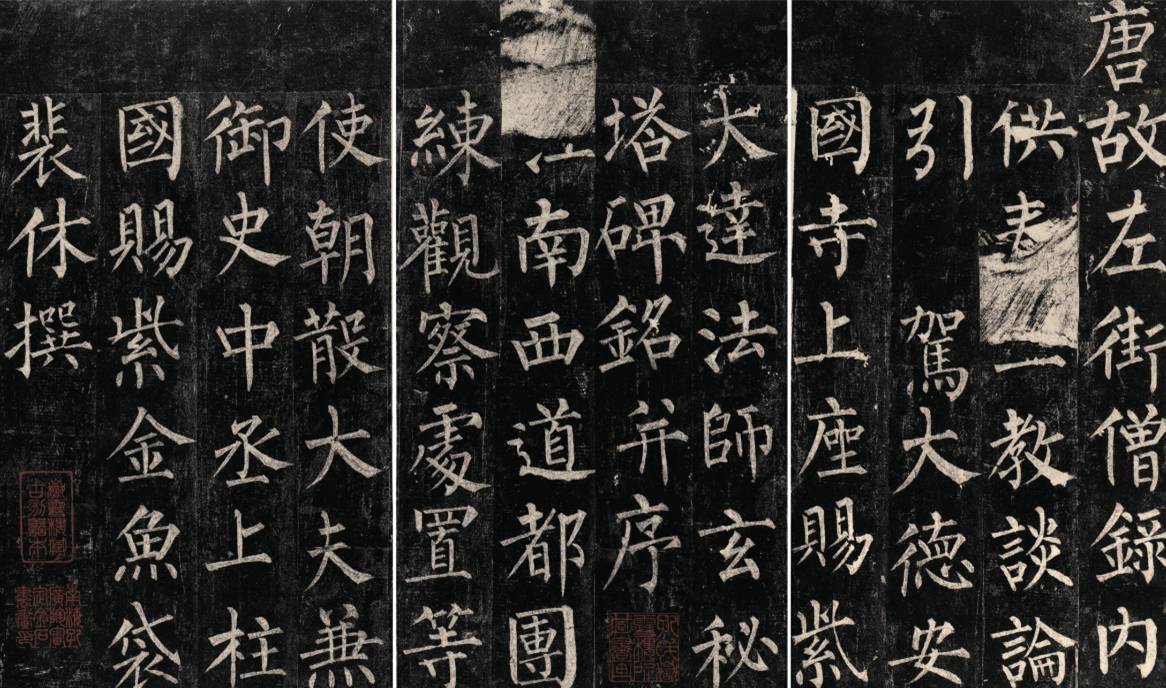 唐故左街僧錄內
供教談論
引駕大德安
國寺上座賜紫
大達法師玄秘
塔碑銘并序
南西道都團
練觀察處置等
使朝散大夫兼
御史中丞上柱
國賜紫金魚袋
裴休撰